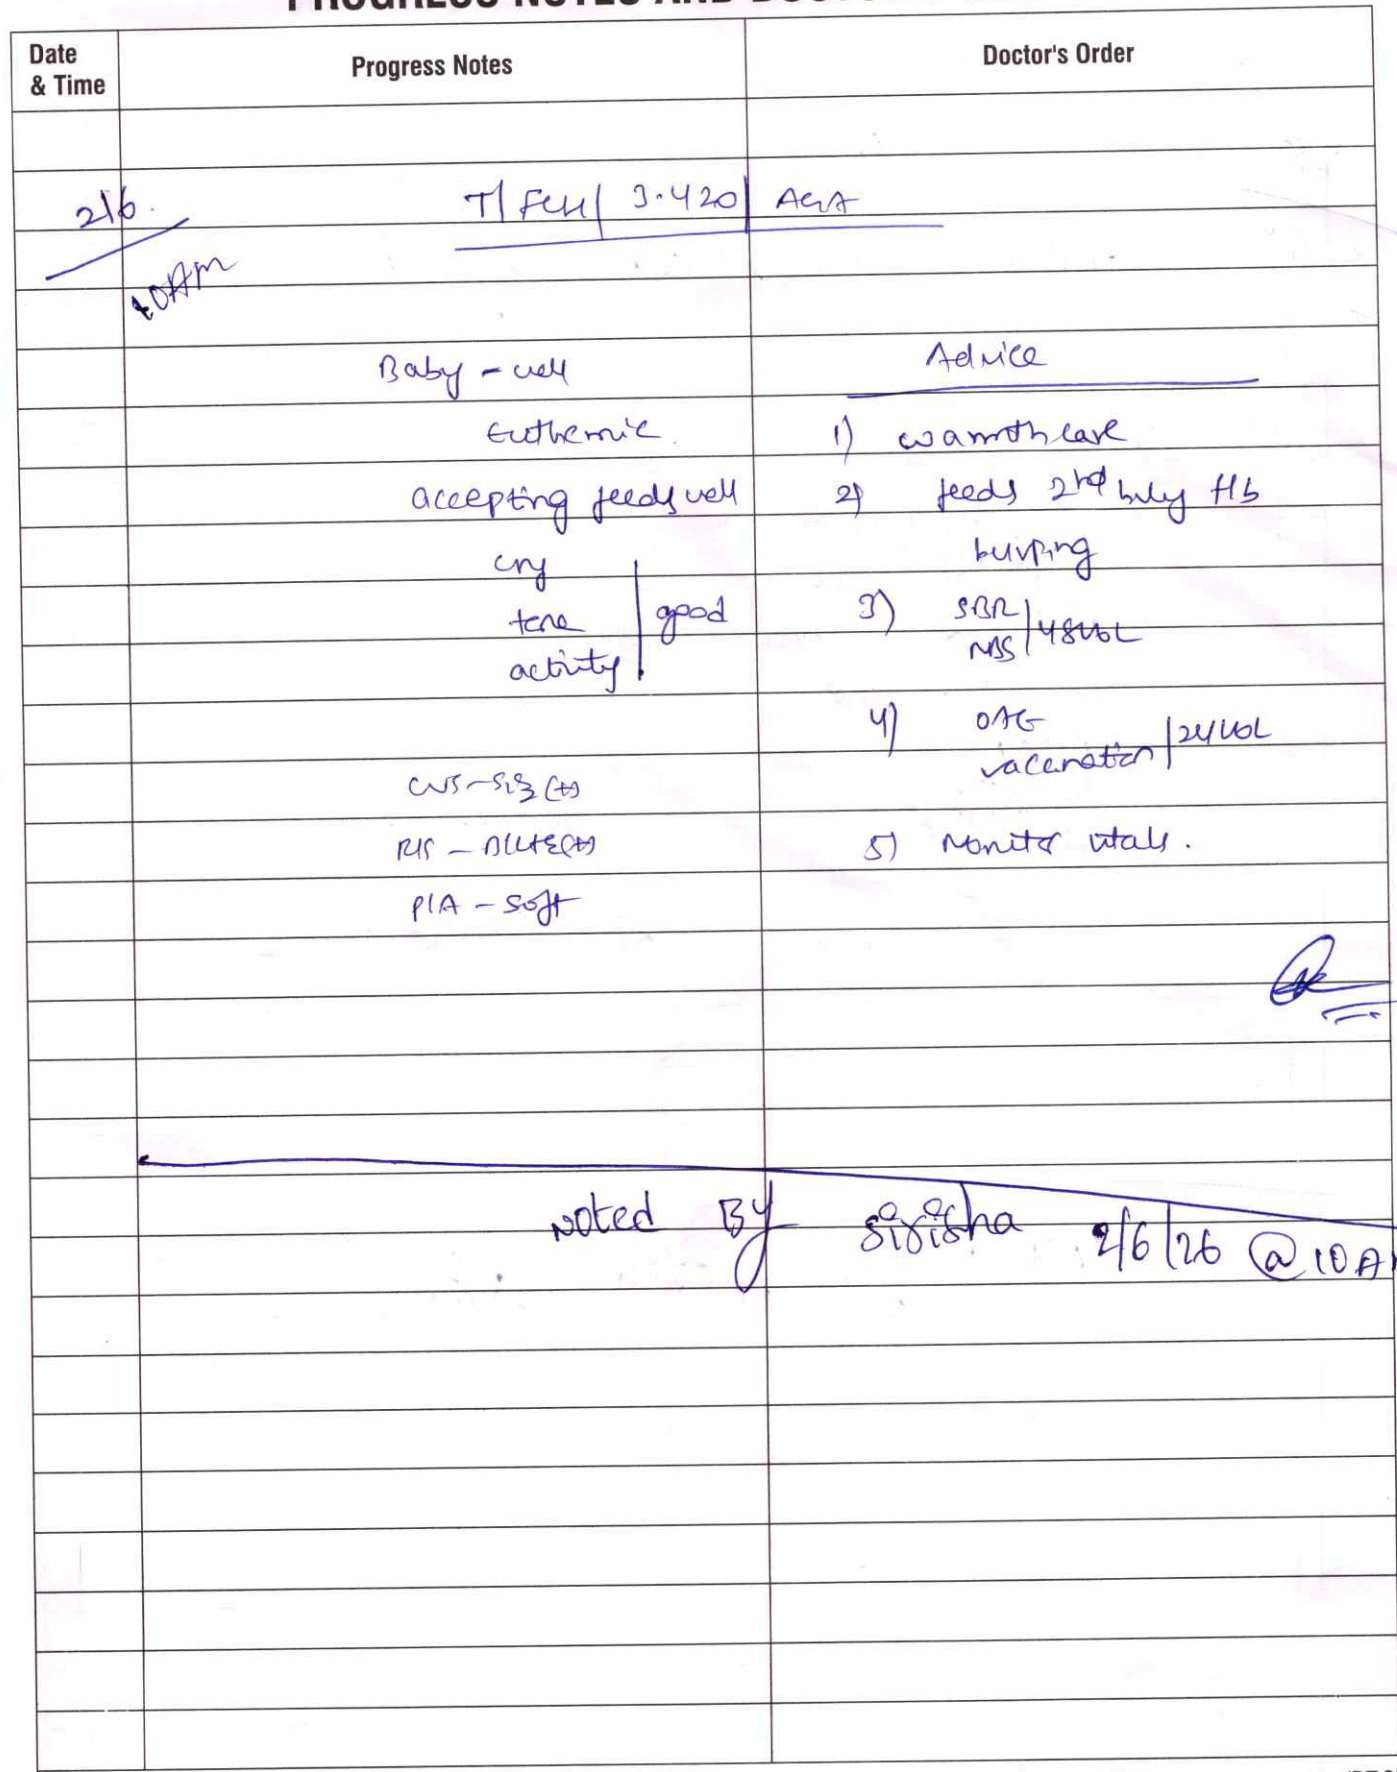 PROGRESS NOTES AND DOCTOR'S
Date & Time
Progress Notes
Doctor's Order
2/6.
10AM
T/ FCH/ 3.420/ AGA
Baby - well
Advice
Euthermic.
1) warmth care
accepting feeds well
2) feeds 2nd hrly f/b
burping
cry
tone
activity
good
3) SBR
NBS
48HOL
4) OAE
vaccination
24HOL
CVS - S1S2 (+)
R/S - BLAE(+)
5) Monitor vitals.
P/A - Soft
Noted By Sirisha 2/6/26 @ 10 A